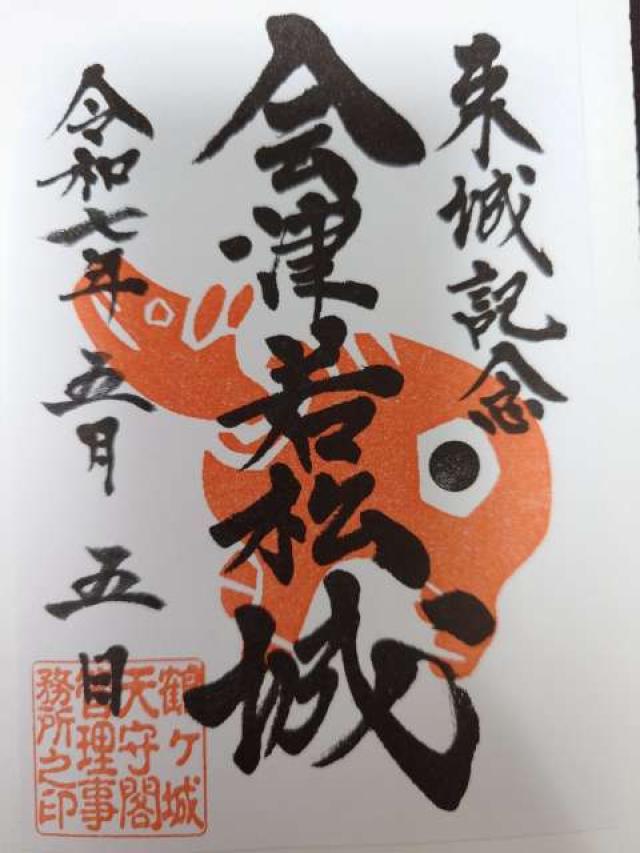 来城記念
会津若松城
令和七年五月五日
鶴ヶ城
天守閣
管理事
務所之印